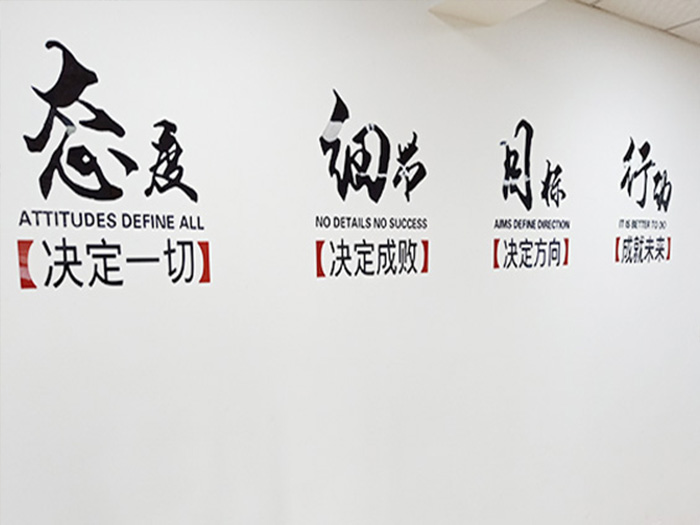 态度
ATTITUDES DEFINE ALL
【决定一切】
细节
NO DETAILS NO SUCCESS
【决定成败】
目标
AIMS DEFINE DIRECTION
【决定方向】
行动
IT IS BETTER TO DO
【成就未来】